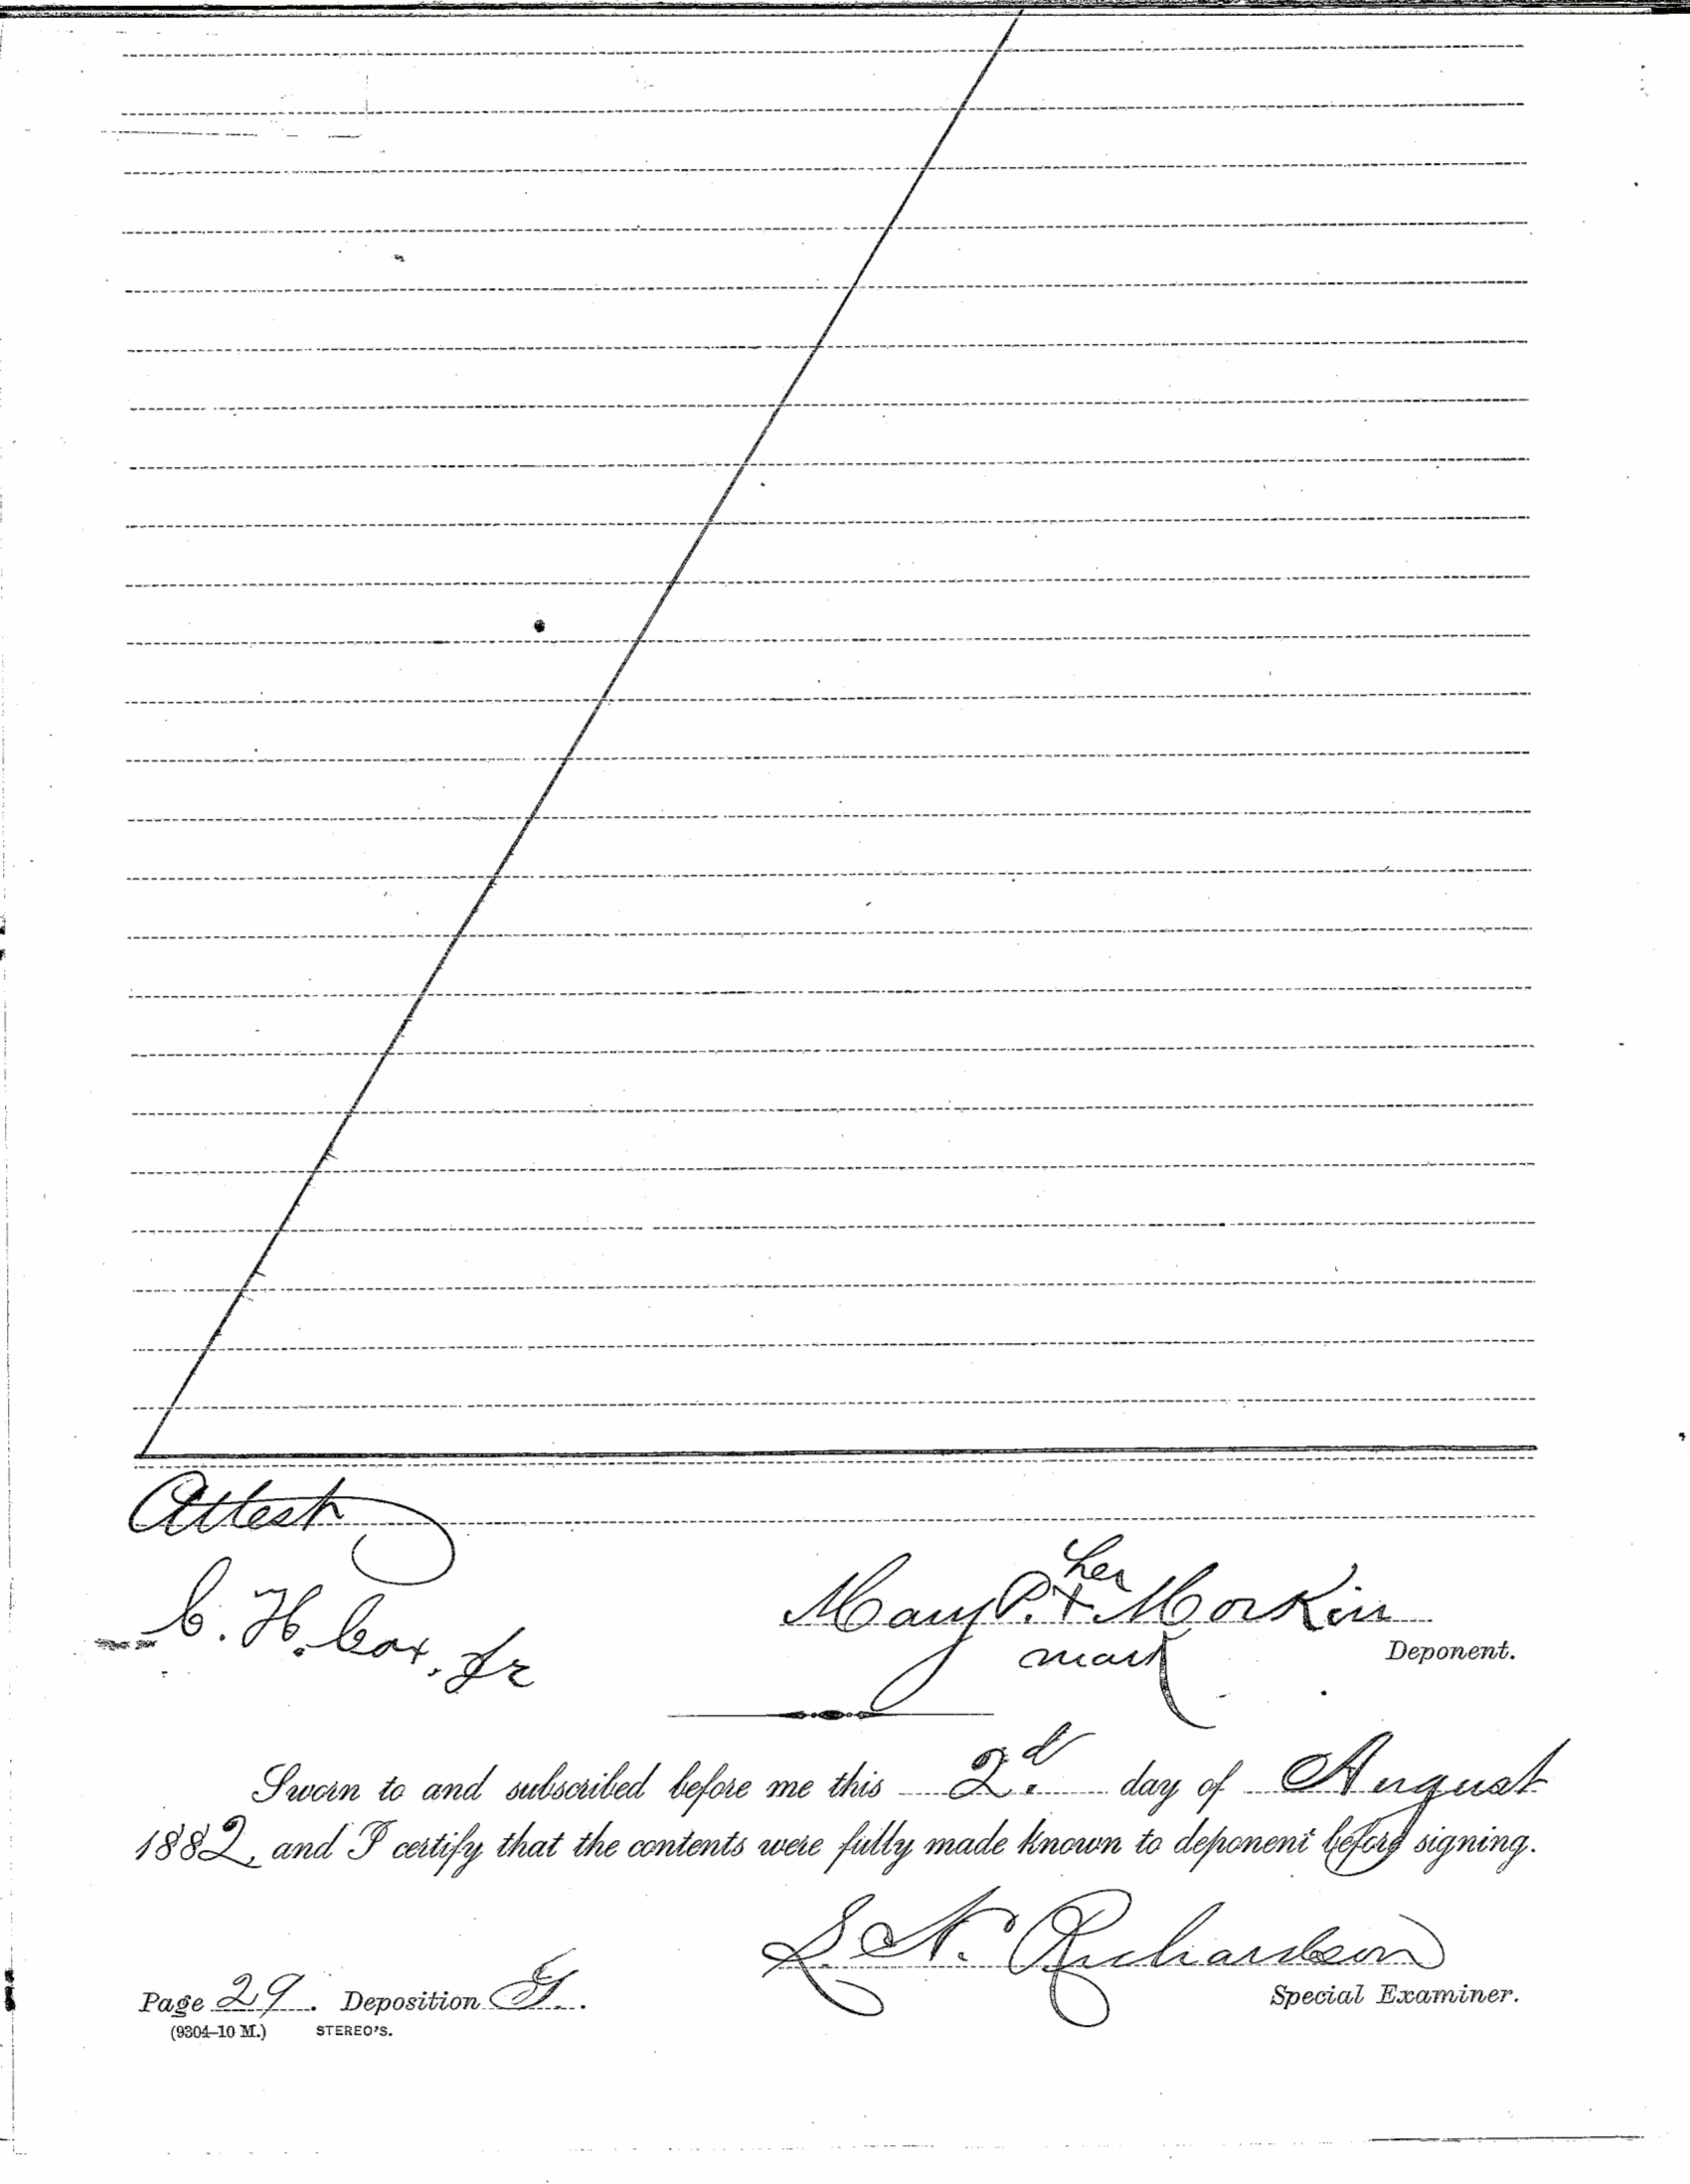 Attest
C. H. Cox, Jr
her
Mary P. X Morkin
mark
Deponent.
Sworn to and subscribed before me this 2.d day of August
1882, and I certify that the contents were fully made known to deponent before signing.
S. N. Richardson
Special Examiner.
Page 29. Deposition G.
(9304–10 M.) STEREO'S.